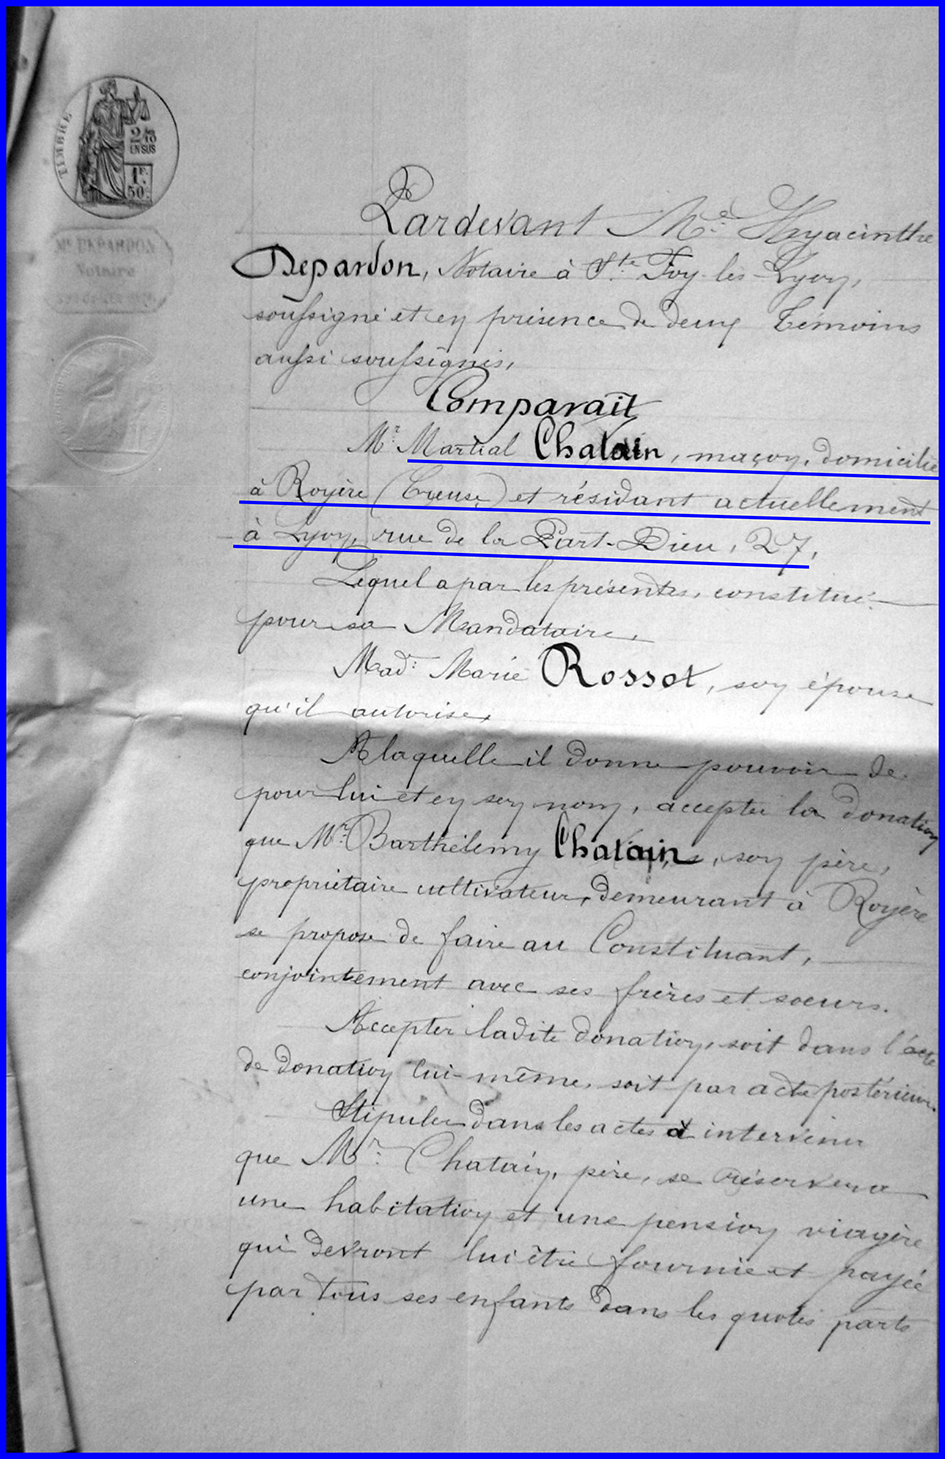 TIMBRE
2/10
EN SUS
1F.
50c.
Me DEPARDON
Notaire
Pardevant Me. Hyacinthe
Depardon, Notaire à Ste. Foy-les-Lyon,
soussigné et en présence de deux témoins
aussi soussignés,
Comparait
Mr. Martial Chatain, maçon, domicilié
à Royère (Creuse) et résidant actuellement
à Lyon, rue de la Part-Dieu, 27,
Lequel a par les présentes, constitué
pour sa Mandataire,
Made. Marie Rossot, son épouse
qu'il autorise,
A laquelle il donne pouvoir de
pour lui et en son nom, accepter la donation
que Mr. Barthélemy Chatain, son père,
propriétaire cultivateur, demeurant à Royère
se propose de faire au Constituant,
conjointement avec ses frères et soeurs.
Accepter ladite donation, soit dans l'acte
de donation lui-même, soit par acte postérieur.
Stipuler dans les actes à intervenir
que Mr. Chatain, père, se réservera
une habitation et une pension viagère
qui devront lui être fournie et payée
par tous ses enfants dans les quotes parts